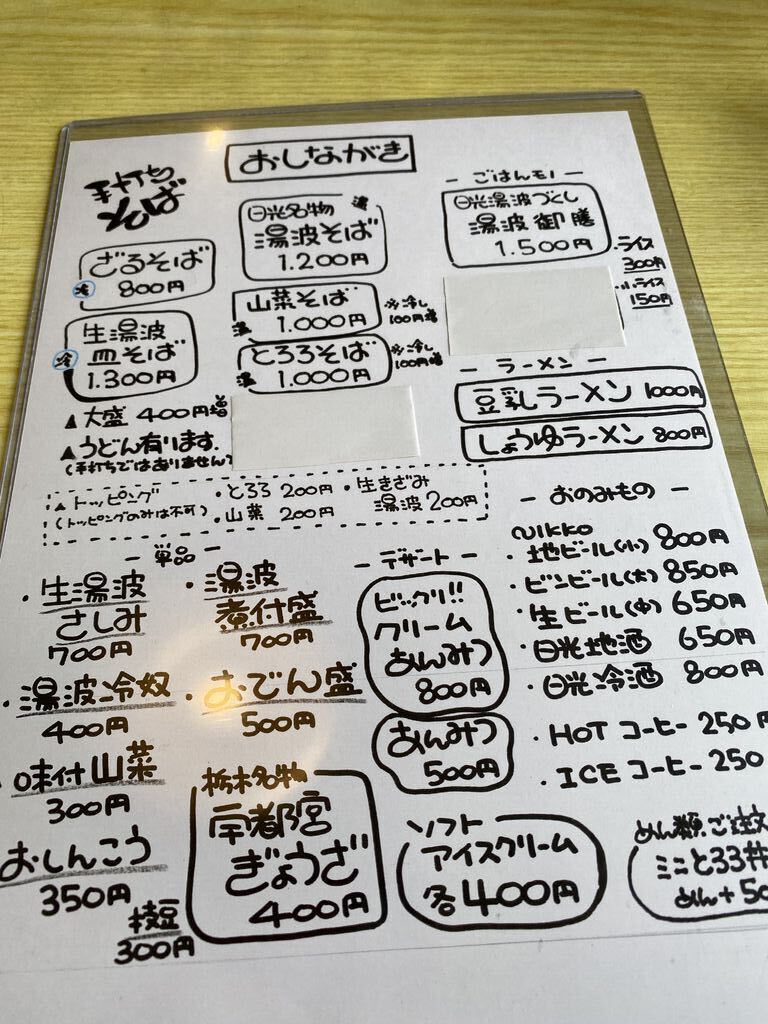 おしながき
手打ち
そば
ざるそば
冷 800円
生湯波
冷 皿そば
1.300円
▲大盛 400円増
▲うどん有ります.
(手打ちではありません)
日光名物 温
湯波そば
1.200円
山菜そば
温 1.000円
※冷し
100円増
とろろそば
温 1.000円
※冷し
100円増
- ごはんモノ -
日光湯波づくし
湯波御膳
1.500円
・ライス
300円
・小ライス
150円
- ラーメン -
豆乳ラーメン 1000円
しょうゆラーメン 800円
▲トッピング
(トッピングのみは不可)
・とろろ 200円
・山菜 200円
・生きざみ
湯波 200円
- 単品 -
・生湯波
さしみ
700円
・湯波
煮付盛
700円
・湯波冷奴
400円
・おでん盛
500円
味付山菜
300円
おしんこう
350円
枝豆
300円
栃木名物
宇都宮
ぎょうざ
400円
- デザート -
ビックリ!!
クリーム
あんみつ
800円
あんみつ
500円
ソフト
アイスクリーム
各400円
- おのみもの -
NIKKO
・地ビール(小) 800円
・ビンビール(大) 850円
・生ビール(中) 650円
・日光地酒 650円
・日光冷酒 800円
・HOT コーヒー 250円
・ICE コーヒー 250
めん類ご注文
ミニとろろ丼
めん+50